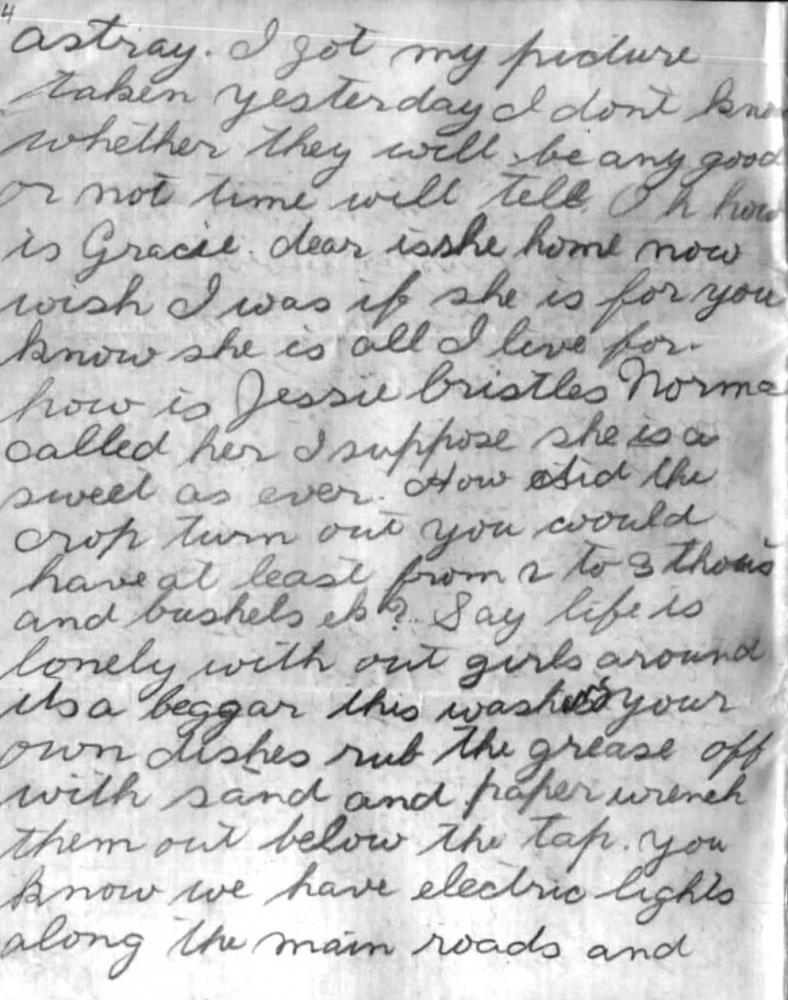 4
astray. I got my picture
taken yesterday I dont kno
whether they will be any good
or not time will tell. Oh how
is Gracie. dear is she home now
wish I was if she is for you
know she is all I live for.
how is Jessie bristles Norma
called her I suppose she is a
sweet as ever. How did the
crop turn out you would
have at least from 2 to 3 thous
and bushels eh? Say life is
lonely with out girls around
its a beggar this washing your
own dishes rub the grease off
with sand and paper wrench
them out below the tap. you
know we have electric lights
along the main roads and